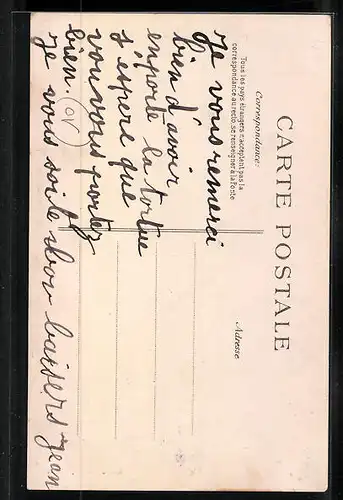 CARTE POSTALE
Correspondance:
Tous les pays étrangers n'acceptent pas la
correspondance au recto, se renseigner à la Poste
Adresse
Je vous remerci
bien d'avoir
enporté la tortue
s'espere que
vou vous portez
bien.
je vous baisers jean